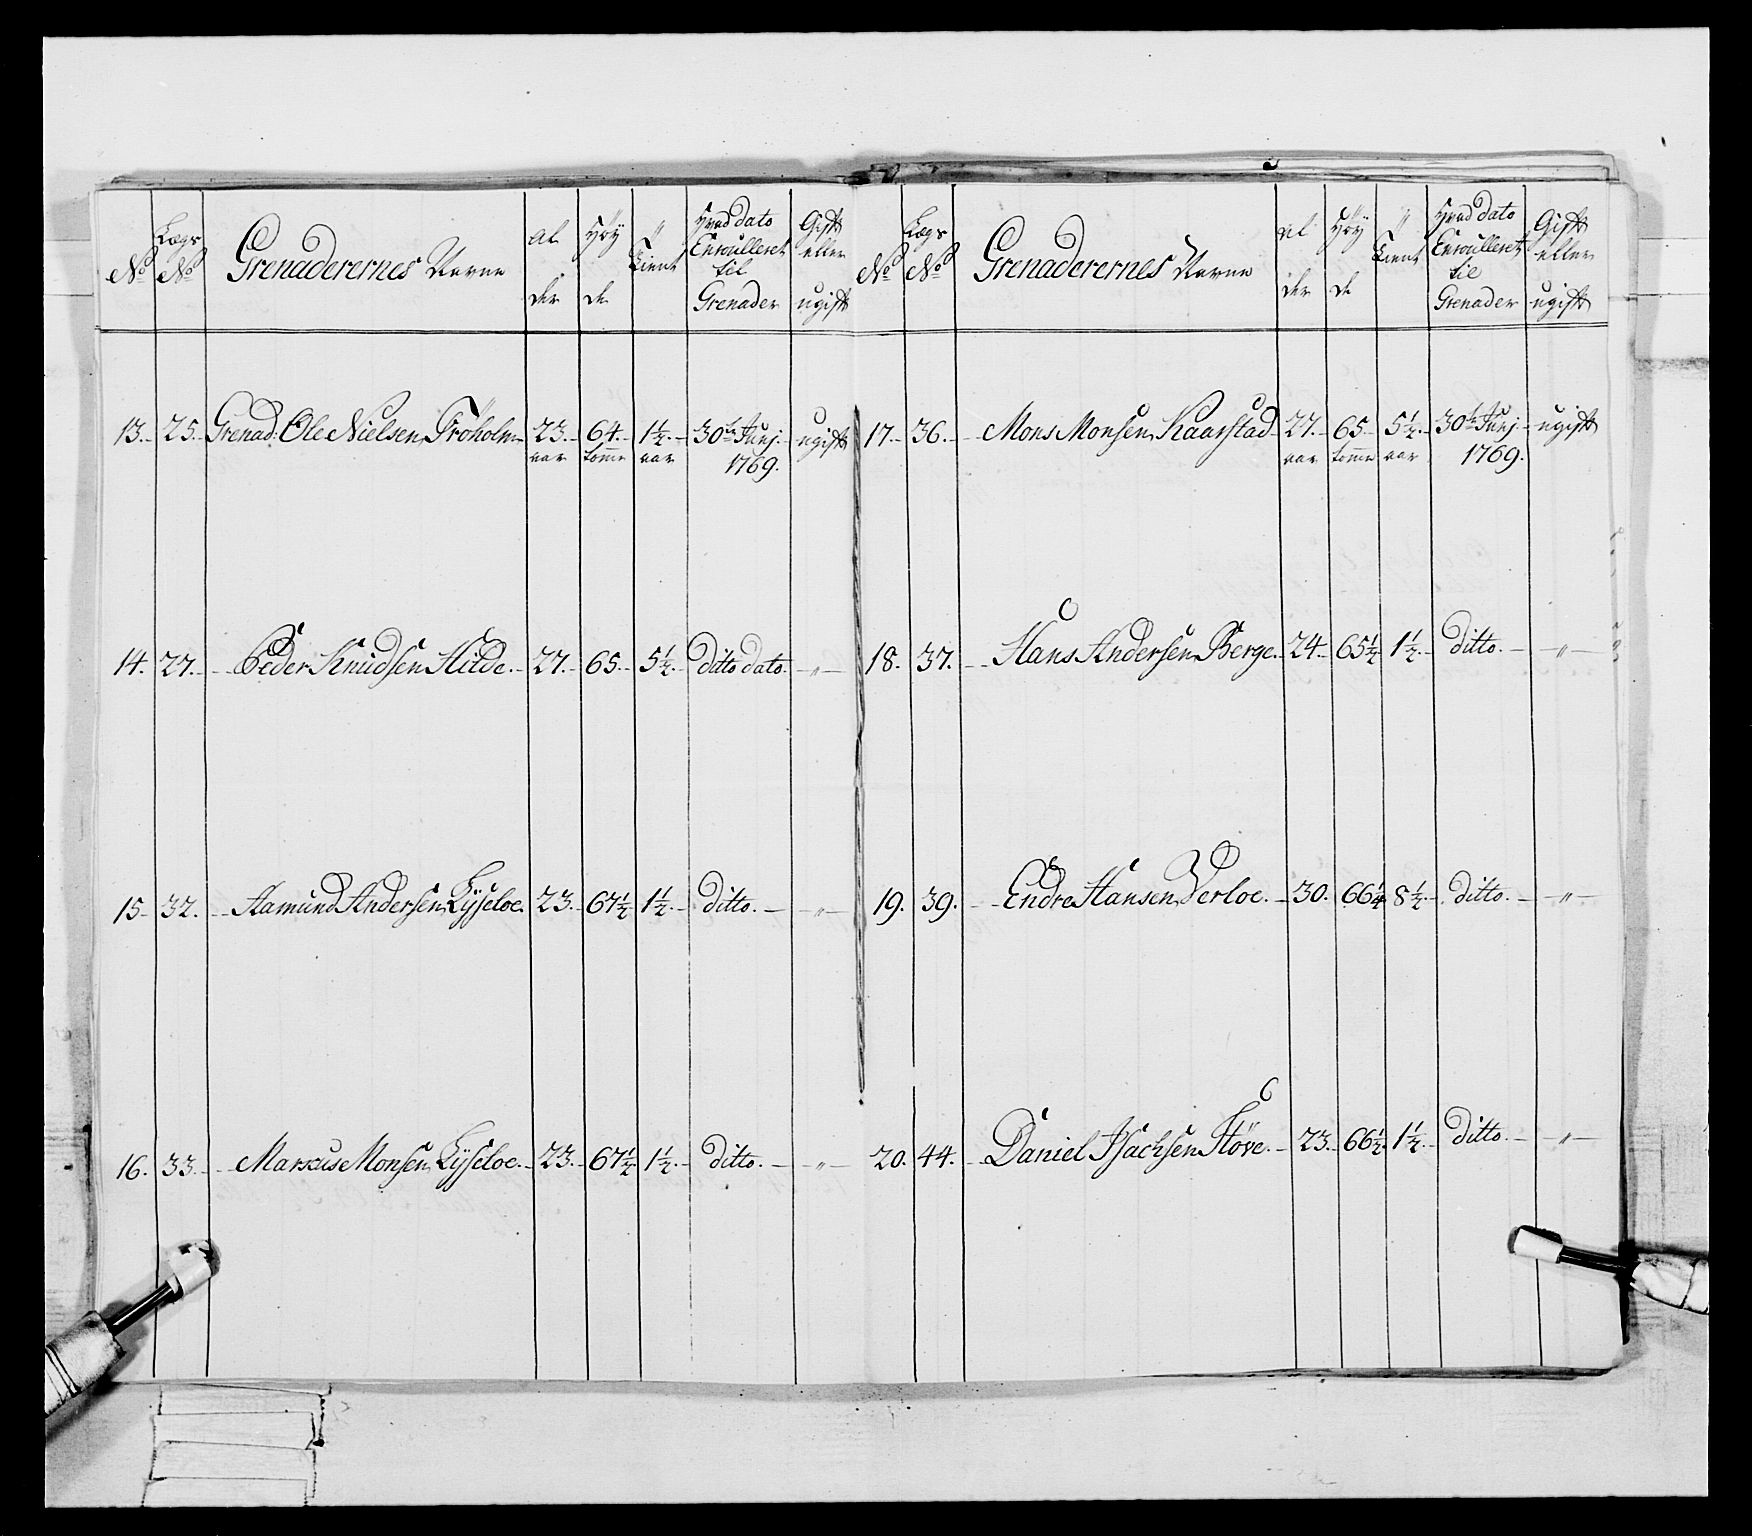 No | Lægs No | Grenaderernes Navne | Alder | Høyde | Tient | Hvad dato Enroulleret til Grenader | Gift eller ugift
13. | 25. | Grenad: Ole Nielsen Tröholm | 23. aar | 64. tomme | 1½. aar | 30te Junj 1769. | ugift
14. | 27. | Peder Knudsen Hilde. | 27. | 65. | 5½. | ditto dato. | "
15. | 32. | Aamund Andersen Lÿseloe. | 23. | 67½ | 1½. | ditto. | "
16. | 33. | Marcus Monsen Lÿseloe. | 23. | 67½ | 1½. | ditto. | "
No | Lægs No | Grenaderernes Navne | Alder | Høyde | Tient | Hvad dato Enroulleret til Grenader | Gift eller ugift
17. | 36. | Mons Monsen Kaarstad | 27. aar | 65. tomme | 5½. aar | 30te Junj 1769. | ugift
18. | 37. | Hans Andersen Berge. | 24. | 65½ | 1½. | ditto. | "
19. | 39. | Endre Hansen Verloe. | 30. | 66¼ | 8½. | ditto. | "
20. | 44. | Daniel Isachsen Støve. | 23. | 66½. | 1½. | ditto. | "